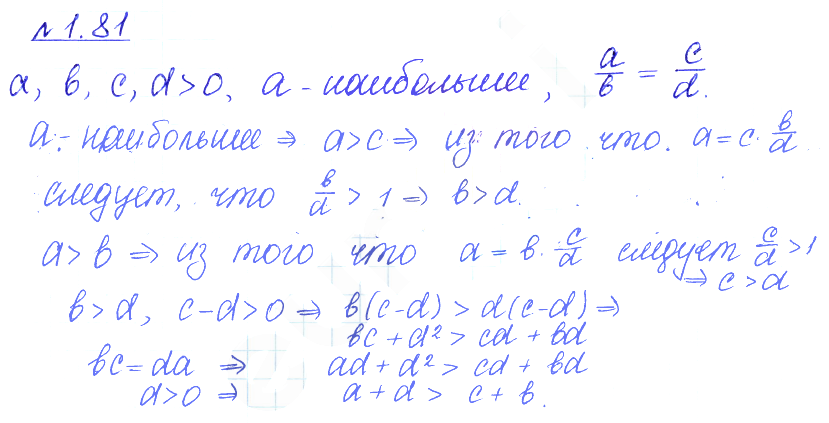 № 1.81
a, b, c, d > 0, a - наибольшее, a/b = c/d.
a - наибольшее ⇒ a > c ⇒ из того что a = c · b/d
следует, что b/d > 1 ⇒ b > d.
a > b ⇒ из того что a = b · c/d следует c/d > 1
⇒ c > d
b > d, c - d > 0 ⇒ b(c-d) > d(c-d) ⇒
bc + d² > cd + bd
bc = da ⇒ ad + d² > cd + bd
d > 0 ⇒ a + d > c + b.